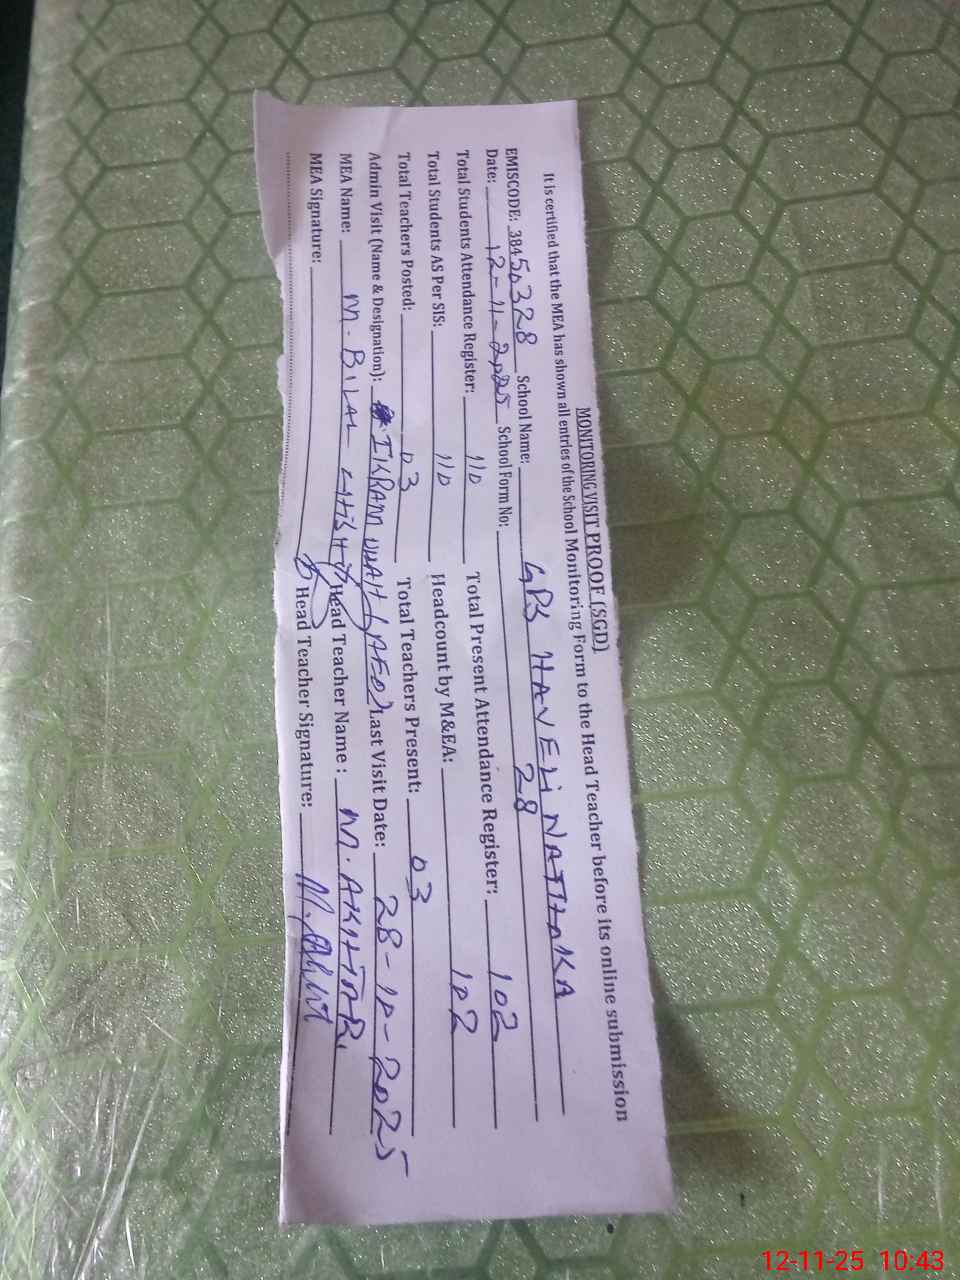 MONITORING VISIT PROOF (SGD)
It is certified that the MEA has shown all entries of the School Monitoring Form to the Head Teacher before its online submission
EMISCODE: 38450328 School Name: GPS HAVELI NATTHOKA
Date: 12-11-2025 School Form No: 28
Total Students Attendance Register: 110 Total Present Attendance Register: 102
Total Students AS Per SIS: 110 Headcount by M&EA: 102
Total Teachers Posted: 03 Total Teachers Present: 03
Admin Visit (Name & Designation): IKRAM ULLAH (AEO) Last Visit Date: 28-10-2025
MEA Name: M. BILAL Head Teacher Name : M. AKHTAR
MEA Signature: Head Teacher Signature:
12-11-25 10:43